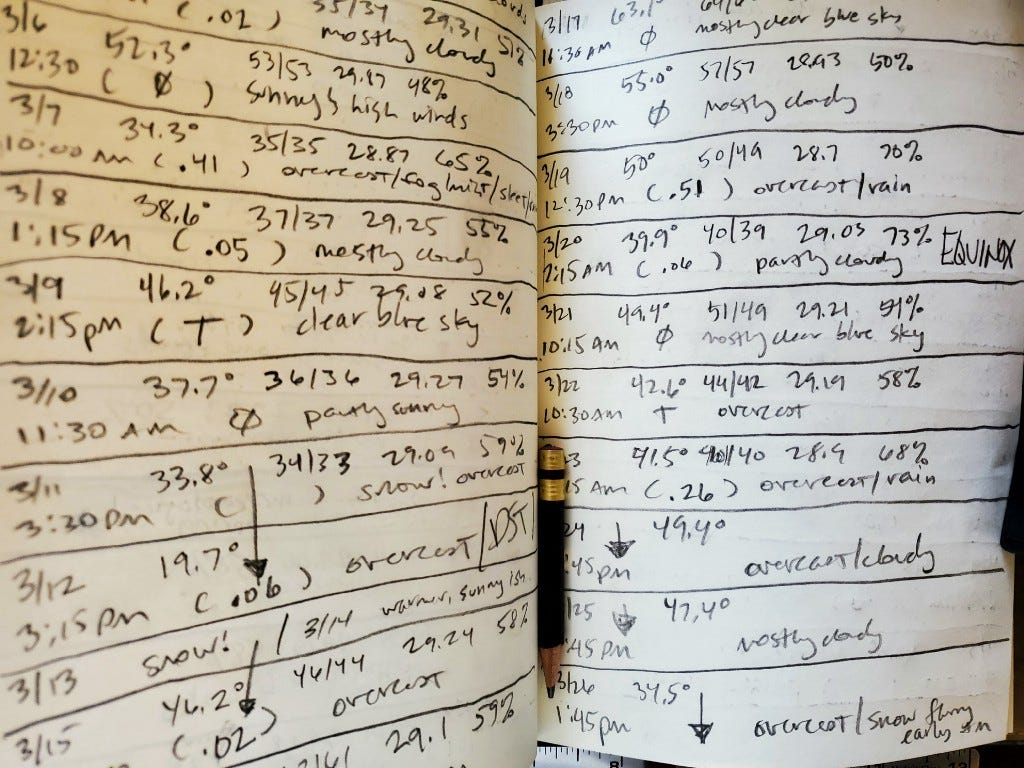 3/6 (.02) 55/54 29.31 51%
mostly cloudy
12:30 52.3° 53/53 29.87 48%
( Ø ) sunny & high winds
3/7 34.3° 35/35 28.87 65%
10:00 AM (.41) overcast/fog/mist/sleet/
3/8 38.6° 37/37 29.25 55%
1:15 PM (.05) mostly cloudy
3/9 46.2° 45/45 29.08 52%
2:15 pm (T) clear blue sky
3/10 37.7° 36/36 29.27 54%
11:30 AM Ø partly sunny
3/11 33.8° 34/33 29.09 59%
3:30 PM ( ↓ ) snow! overcast
3/12 19.7° overcast /DST/
3:15 PM (.06)
3/13 snow! / 3/14 warmer, sunny ish
3/15 46.2° 46/44 29.24 58%
(.02) overcast
29.1 59%
3/17 63.1°
11:30 AM Ø mostly clear blue sky
3/18 55.0° 57/57 28.93 50%
3:30 pm Ø mostly cloudy
3/19 50° 50/49 28.7 70%
12:30 PM (.51) overcast/rain
3/20 39.9° 40/39 29.03 73% EQUINOX
2:15 AM (.06) partly cloudy
3/21 49.4° 51/49 29.21 51%
10:15 AM Ø mostly clear blue sky
3/22 42.6° 44/42 29.19 58%
10:30 AM T overcast
3 41.5° 40/40 28.9 68%
15 AM (.26) overcast/rain
24 ↓ 49.4°
:45 pm overcast/cloudy
/25 ↓ 47.4°
:45 PM mostly cloudy
3/26 34.5° ↓
1:45 pm overcast/snow flurry
early am